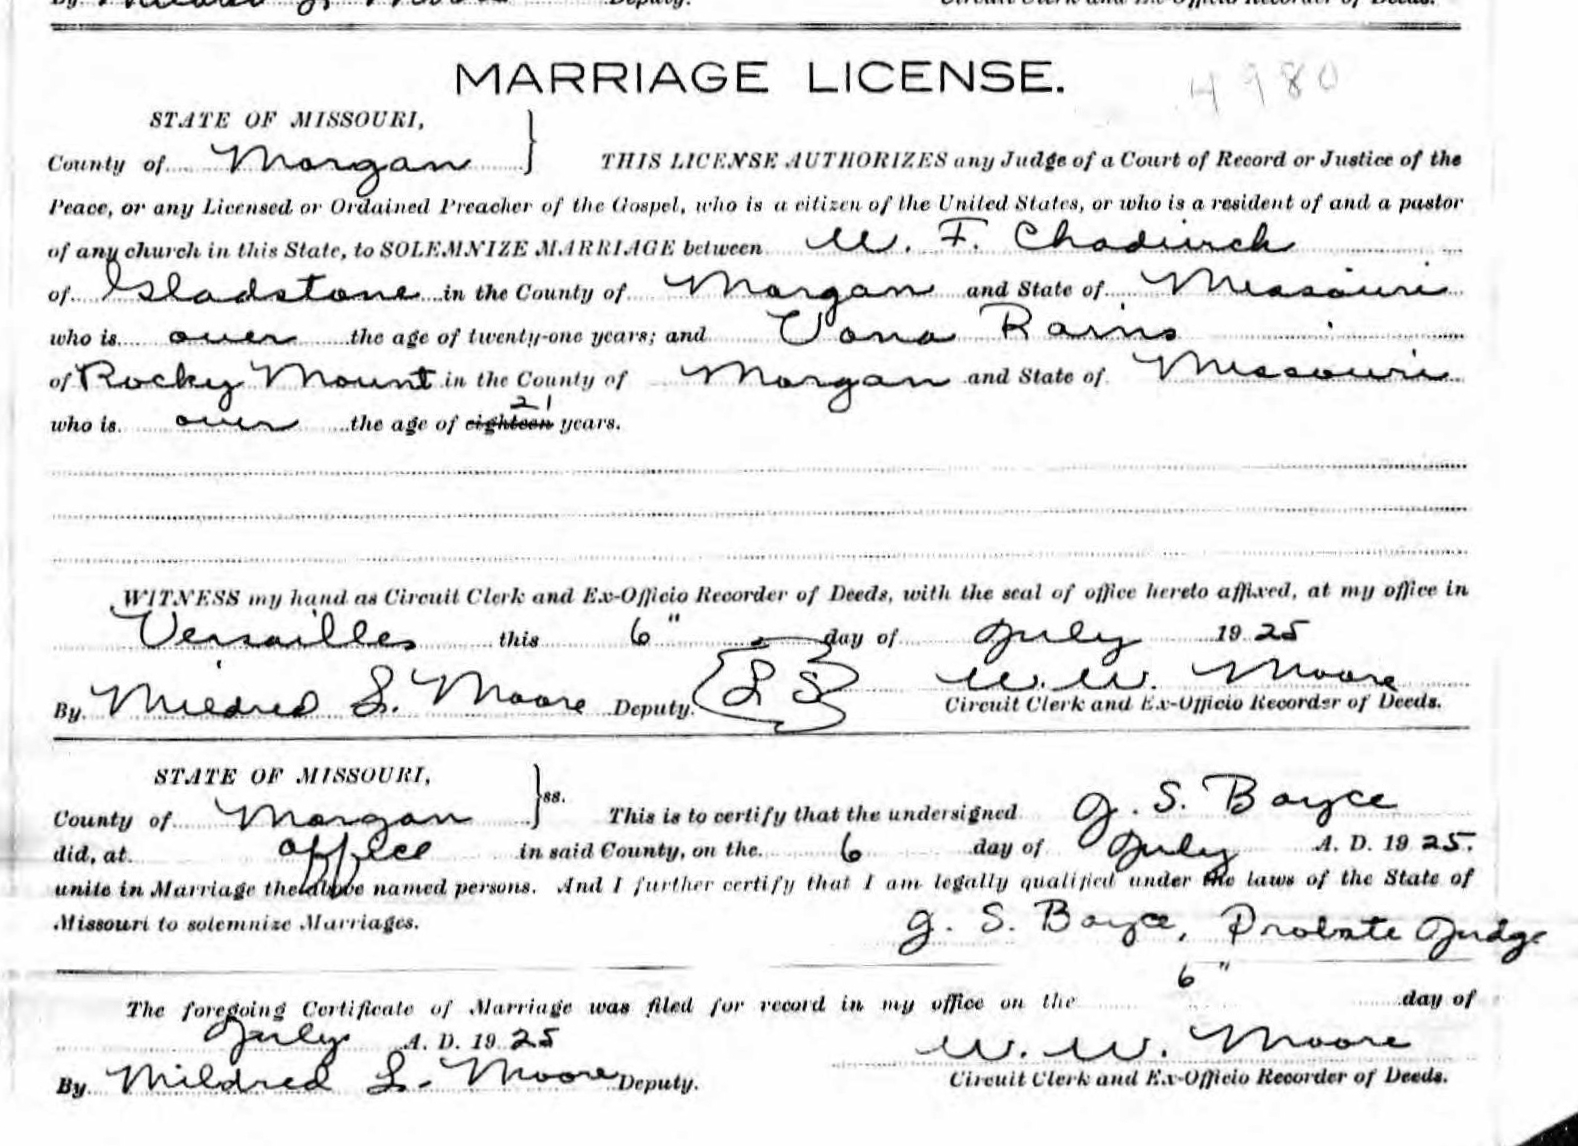 By Mildred L. Moore Deputy. Circuit Clerk and Ex-Officio Recorder of Deeds.
MARRIAGE LICENSE. 4980
STATE OF MISSOURI,
County of Morgan } THIS LICENSE AUTHORIZES any Judge of a Court of Record or Justice of the
Peace, or any Licensed or Ordained Preacher of the Gospel, who is a citizen of the United States, or who is a resident of and a pastor
of any church in this State, to SOLEMNIZE MARRIAGE between W. F. Chadwick
of Gladstone in the County of Morgan and State of Missouri
who is over the age of twenty-one years; and Vona Rains
of Rocky Mount in the County of Morgan and State of Missouri
21
who is over the age of eighteen years.
WITNESS my hand as Circuit Clerk and Ex-Officio Recorder of Deeds, with the seal of office hereto affixed, at my office in
Versailles this 6" day of July 1925
By Mildred L. Moore Deputy. L S W. W. Moore
Circuit Clerk and Ex-Officio Recorder of Deeds.
STATE OF MISSOURI,
County of Morgan } ss. This is to certify that the undersigned J. S. Boyce
did, at office in said County, on the 6 day of July A. D. 1925.
unite in Marriage the above named persons. And I further certify that I am legally qualified under the laws of the State of
Missouri to solemnize Marriages.
J. S. Boyce, Probate Judge
The foregoing Certificate of Marriage was filed for record in my office on the 6" day of
July A. D. 1925 W. W. Moore
By Mildred L. Moore Deputy. Circuit Clerk and Ex-Officio Recorder of Deeds.